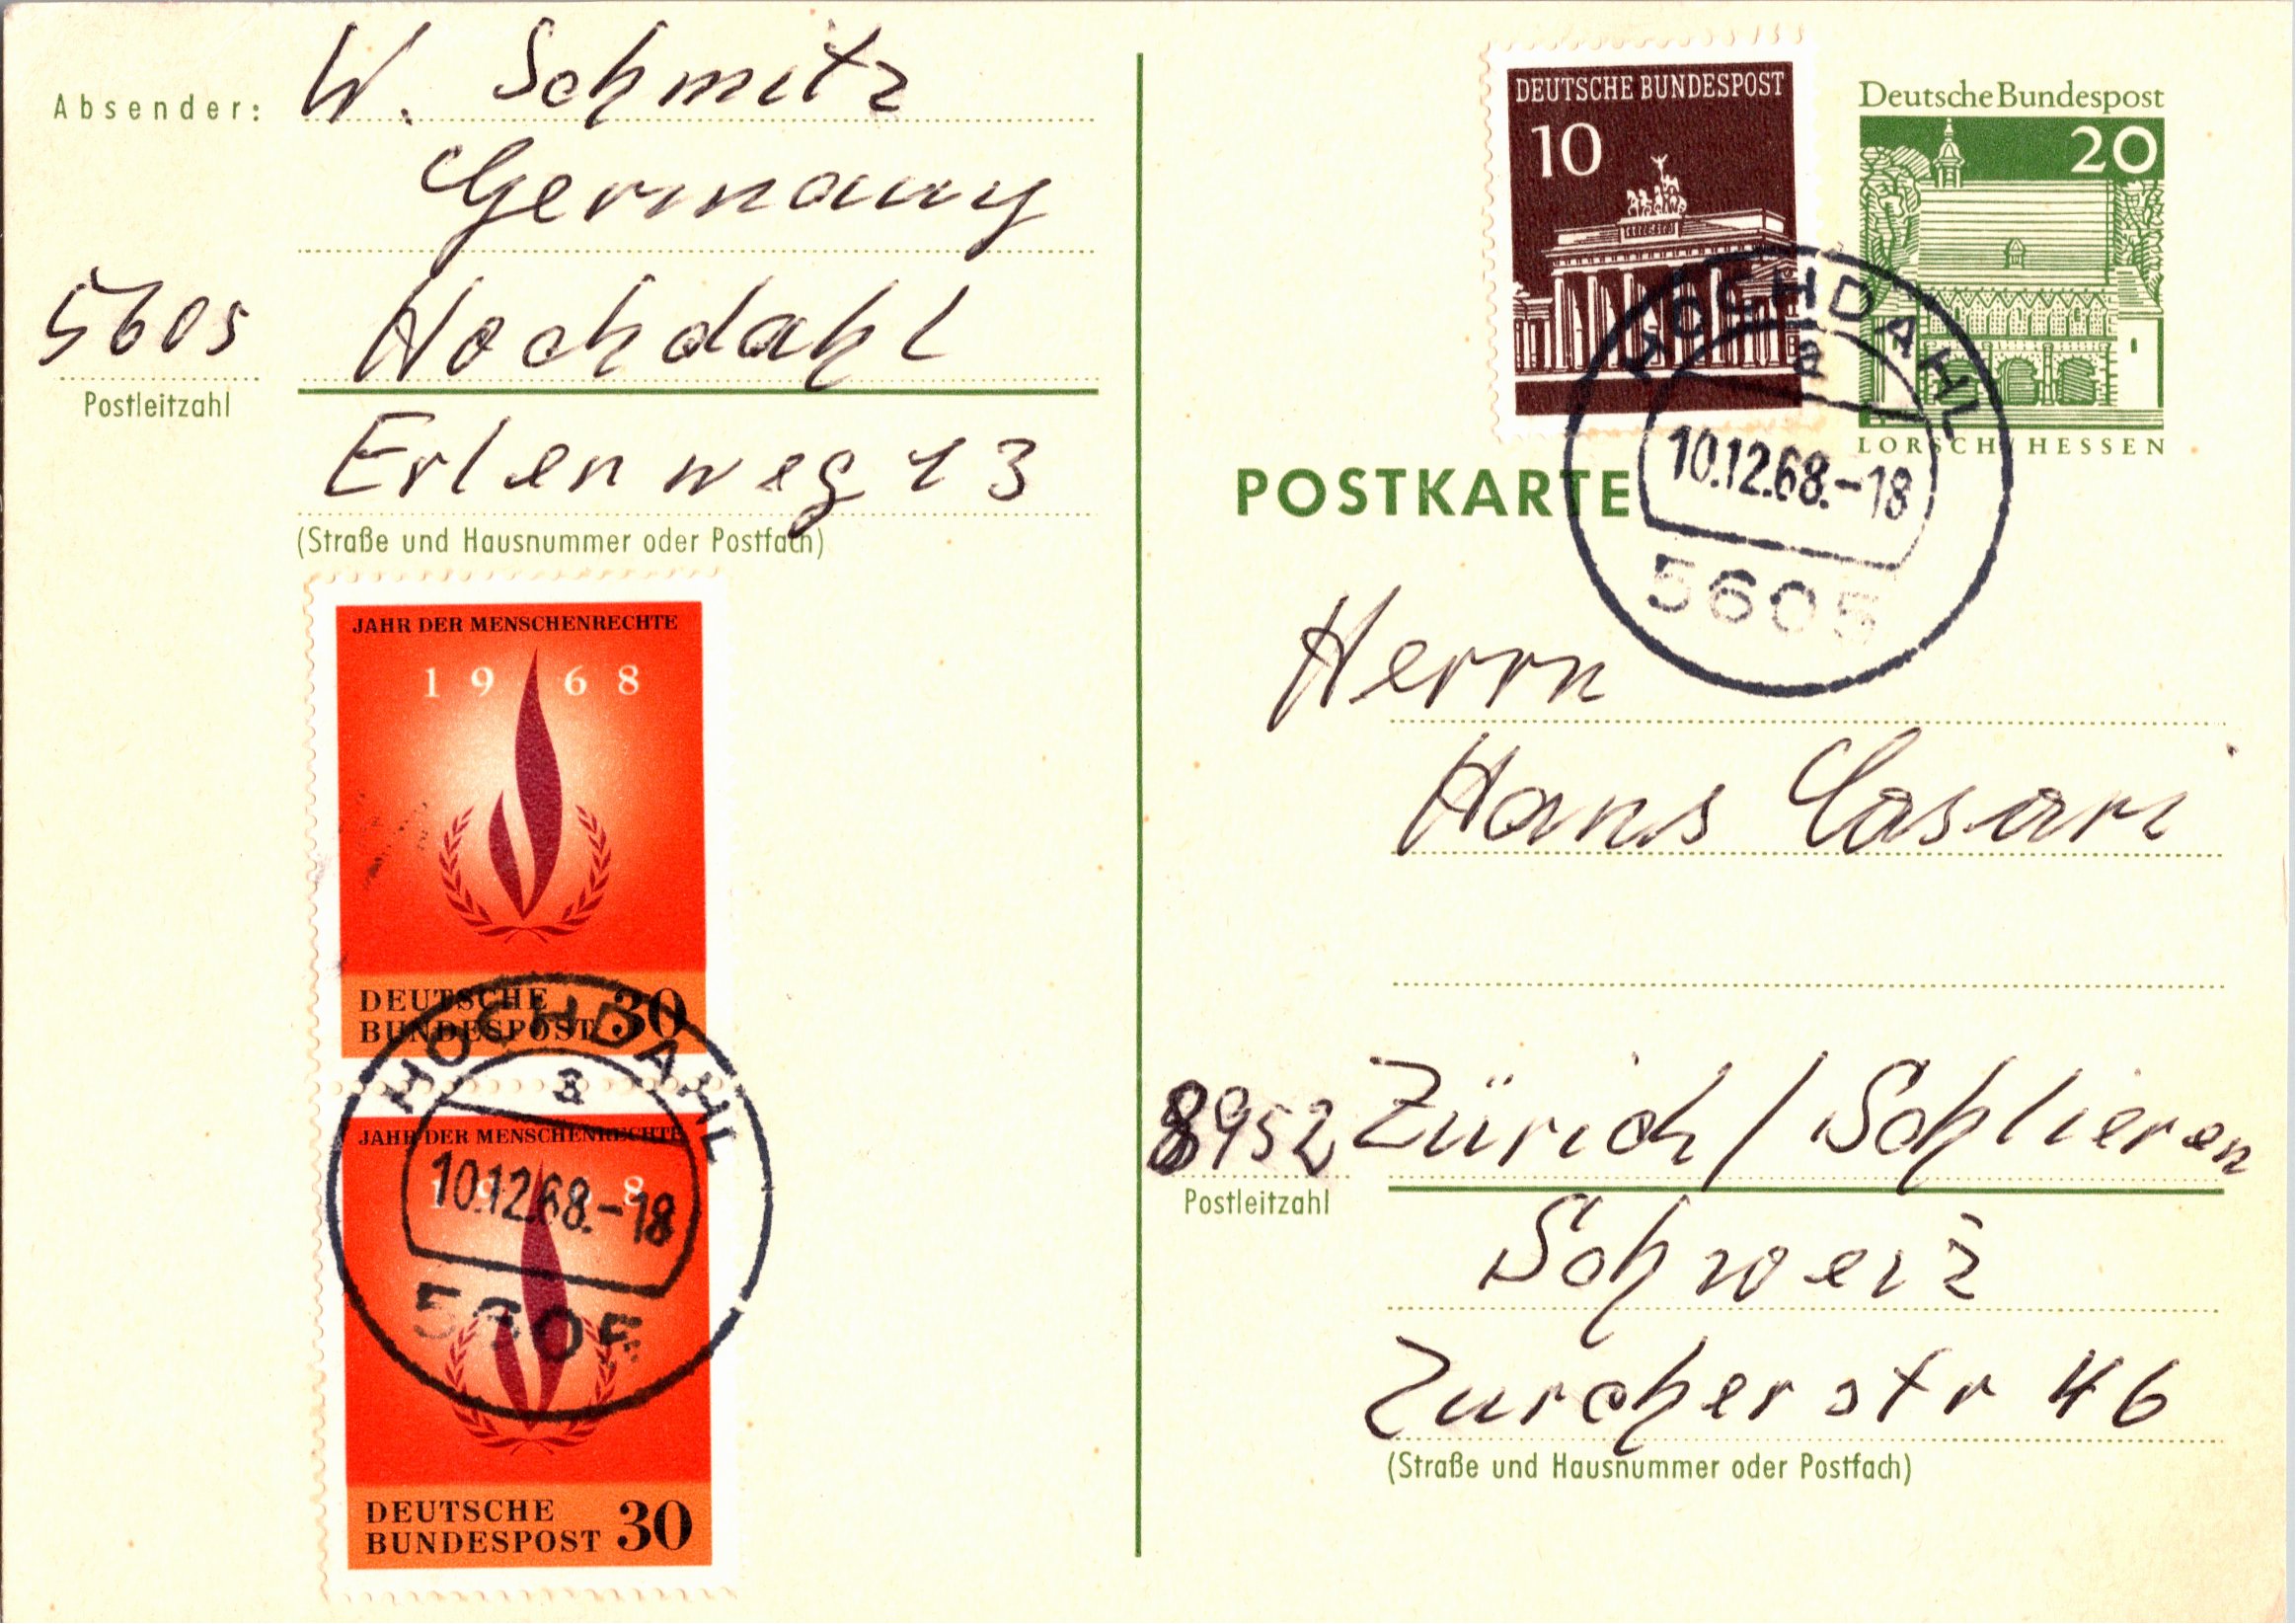 Absender: W. Schmitz
Germany
5605 Hochdahl
Postleitzahl
Erlenweg 13
(Straße und Hausnummer oder Postfach)
JAHR DER MENSCHENRECHTE
1968
DEUTSCHE
BUNDESPOST 30
HOCHDAHL
a
10.12.68.-18
5605
JAHR DER MENSCHENRECHTE
1968
DEUTSCHE
BUNDESPOST 30
DEUTSCHE BUNDESPOST
10
Deutsche Bundespost
20
LORSCH/HESSEN
HOCHDAHL
a
10.12.68.-18
5605
POSTKARTE
Herrn
Hans Casari
8952 Zürich/Schlieren
Postleitzahl
Schweiz
Zurcherstr 46
(Straße und Hausnummer oder Postfach)